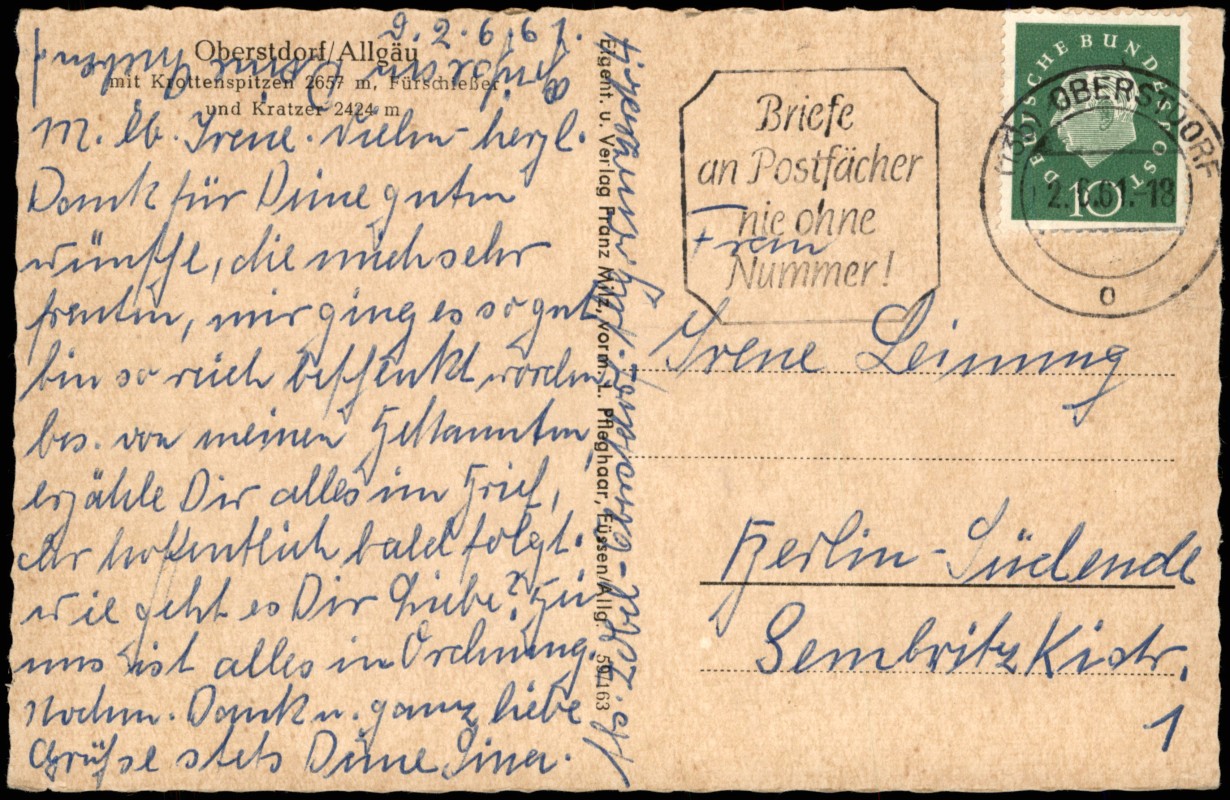 Oberstdorf/Allgäu
mit Krottenspitzen 2657 m, Fürschießer
und Kratzer 2424 m
D. 2.6.61.
M. lb. Irene. Vielen herzl.
Dank für Deine guten
Wünsche, die mich sehr
freuten, mir ging es so gut
bin so reich beschenkt worden
bes. von meinen Bekannten,
erzähle Dir alles im Brief,
der hoffentlich bald folgt.
Wie geht es Dir Liebe? Bei
uns ist alles in Ordnung.
Nochm. Dank u. ganz liebe
Grüsse stets Deine
Eigent. u. Verlag Franz Milz, vorm. L. Pfleghaar, Füssen/Allg. 59/163
Briefe
an Postfächer
nie ohne
Nummer!
DEUTSCHE BUNDESPOST
10
OBERSTDORF
2.6.61.-18
a
Frau
Irene Leinung
Berlin-Südende
Sembritzkistr.
1